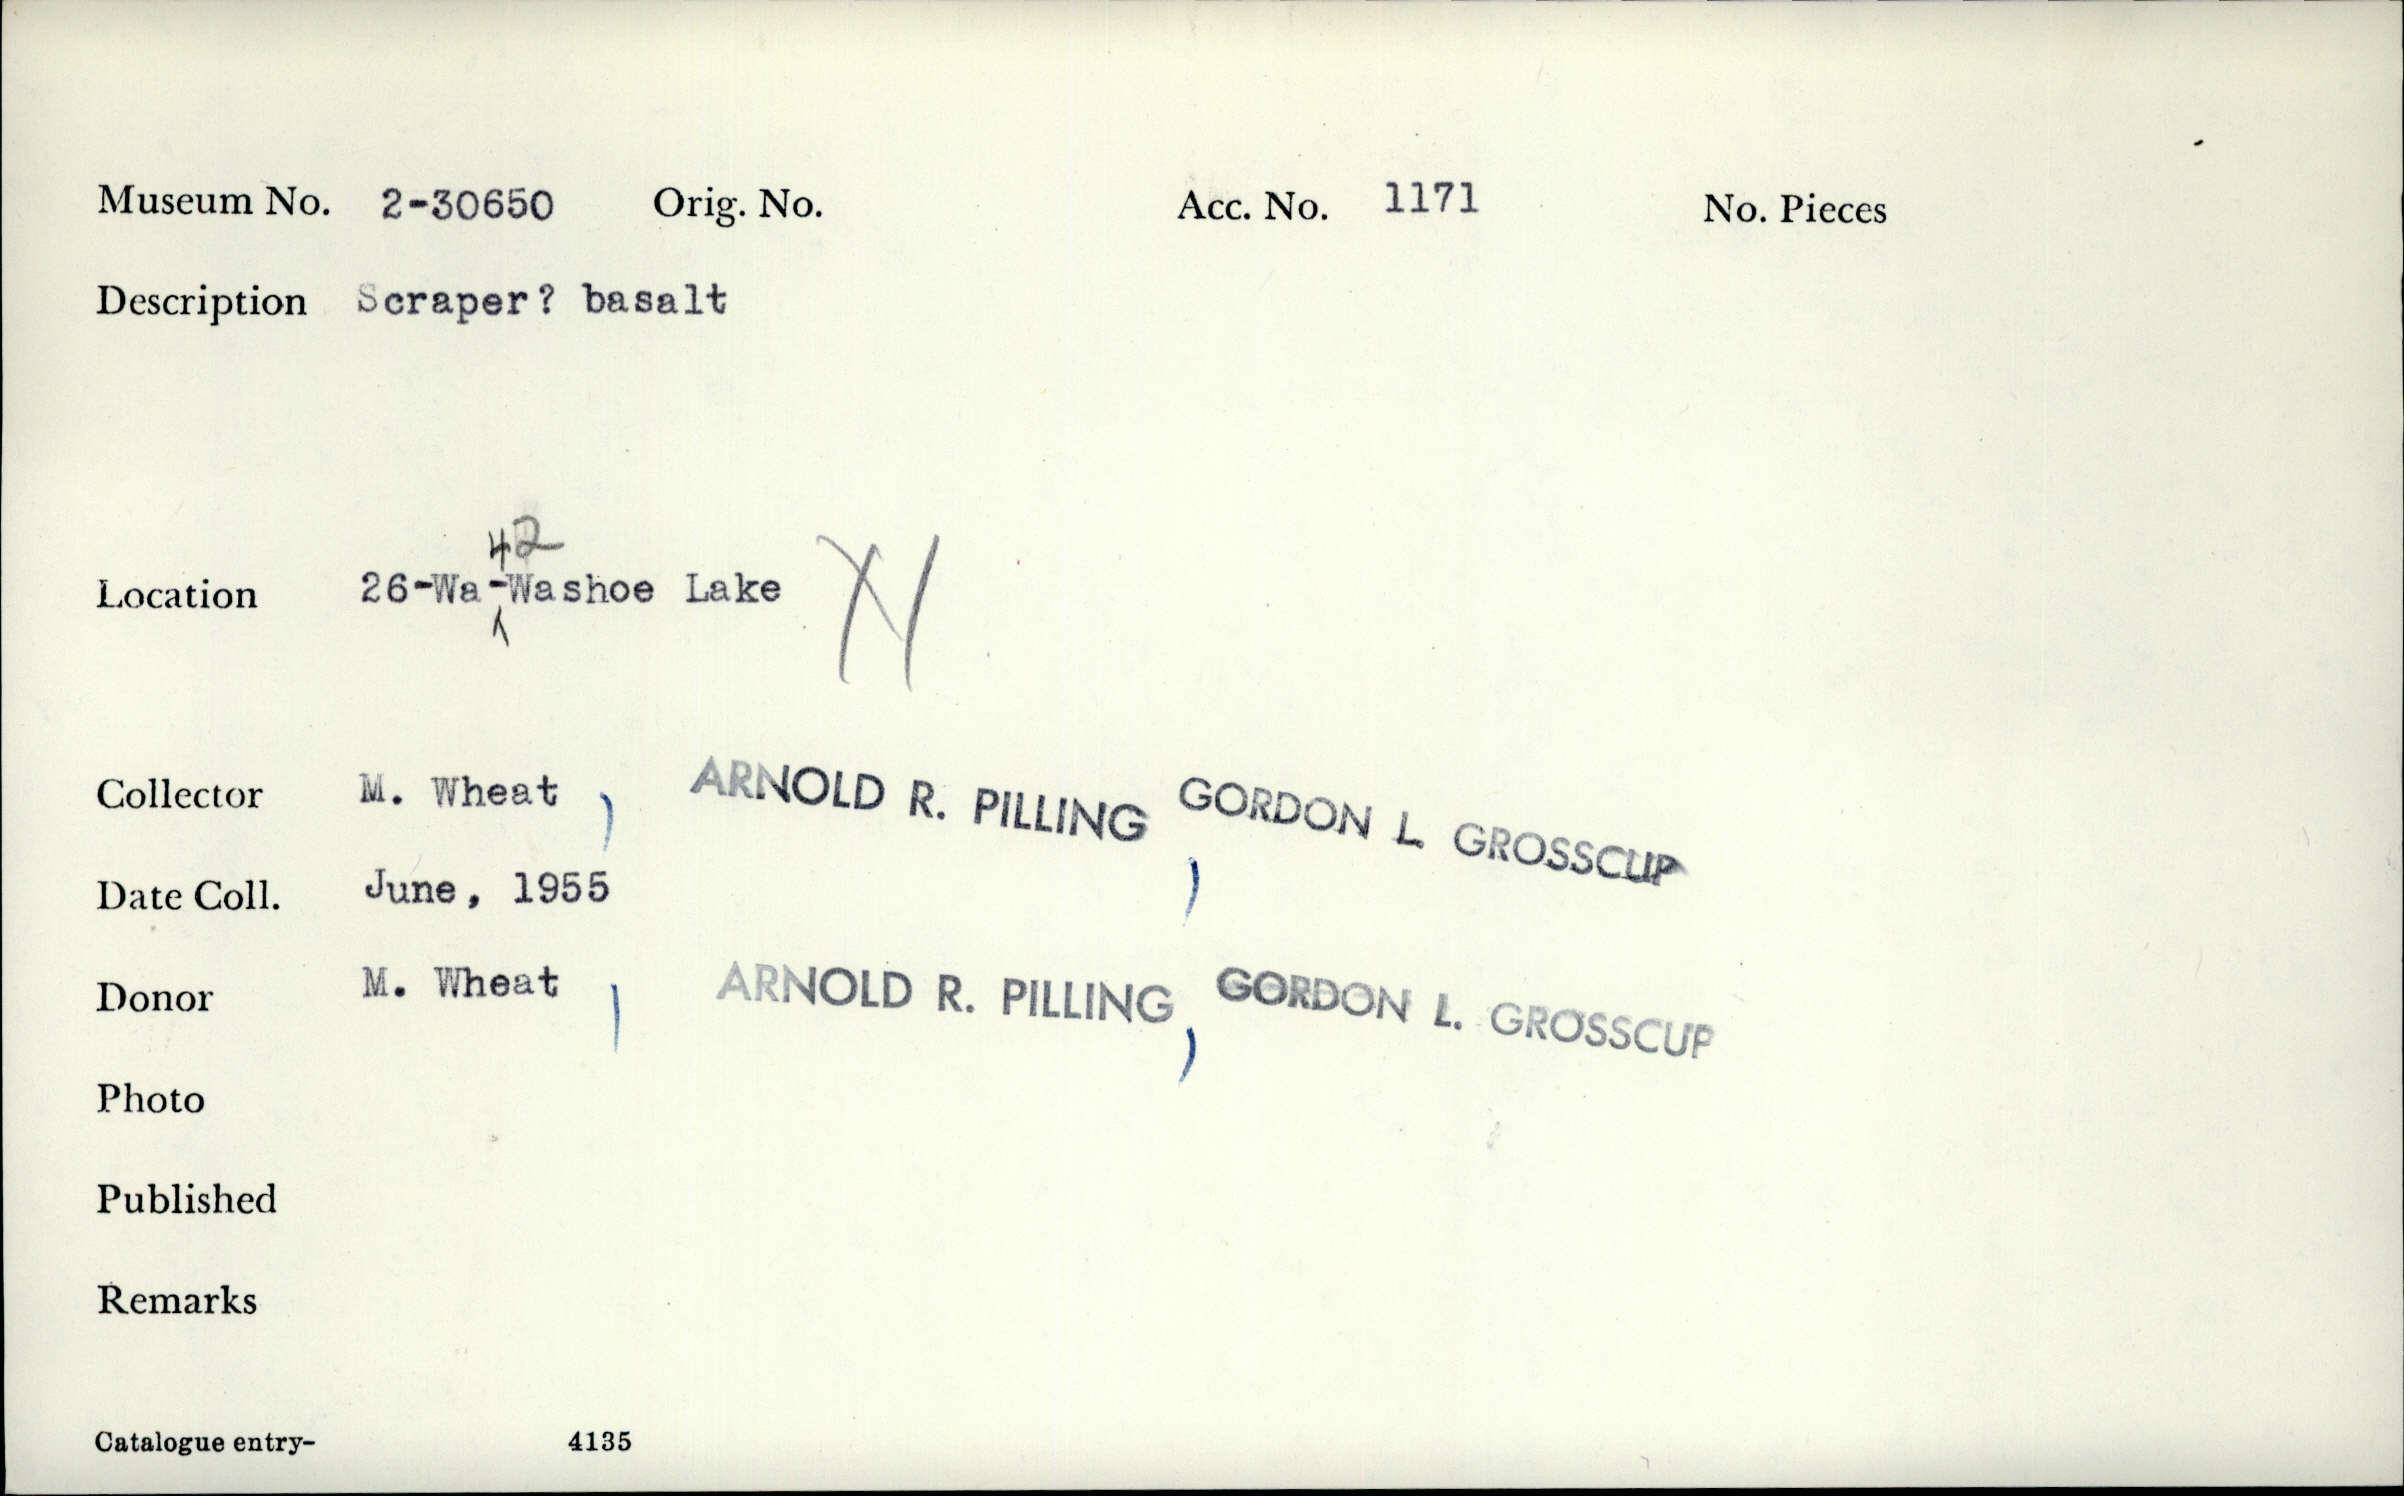 Museum No. 2-30650 Orig. No. Acc. No. 1171 No. Pieces
Description Scraper? basalt
42
Location 26-Wa-Washoe Lake
Collector M. Wheat, ARNOLD R. PILLING, GORDON L. GROSSCUP
Date Coll. June, 1955
Donor M. Wheat, ARNOLD R. PILLING, GORDON L. GROSSCUP
Photo
Published
Remarks
Catalogue entry- 4135